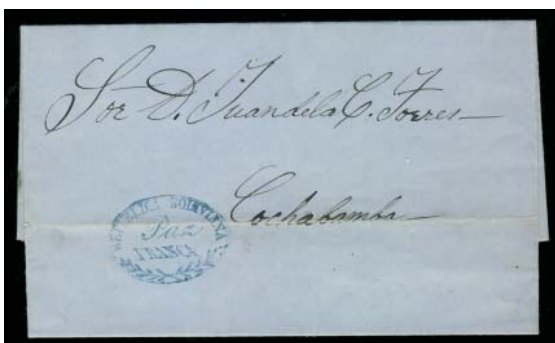 Sor D. Juan de la C. Torres
Cochabamba
REPUBLICA BOLIVIANA
Paz
FRANCA